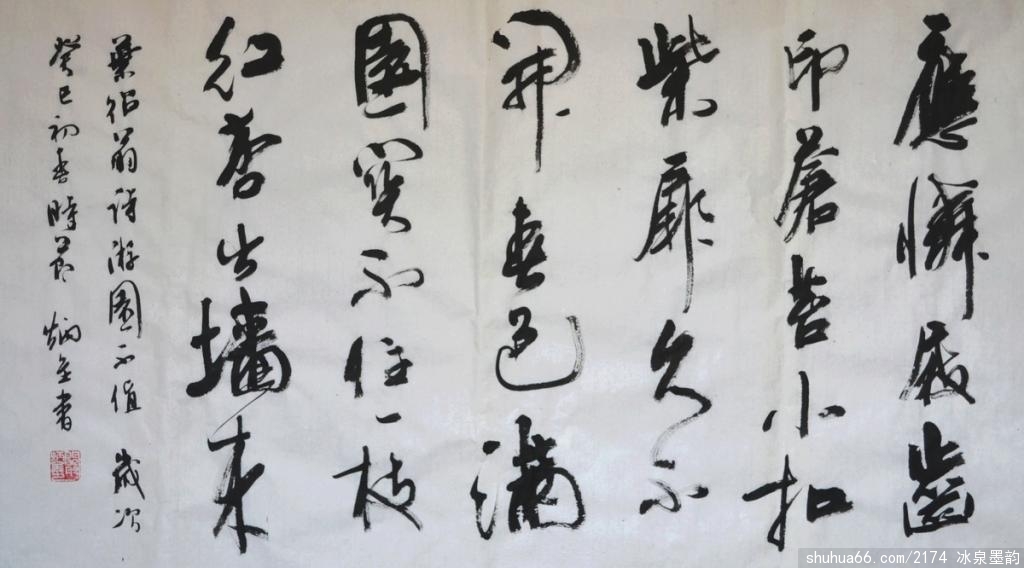 應憐屐齒
印蒼苔小扣
柴扉久不
開春色滿
園關不住一枝
紅杏出墻來
葉紹翁詩游園不值 歲次
癸巳初春時節 炳書
shuhua66.com/2174 冰泉墨韵